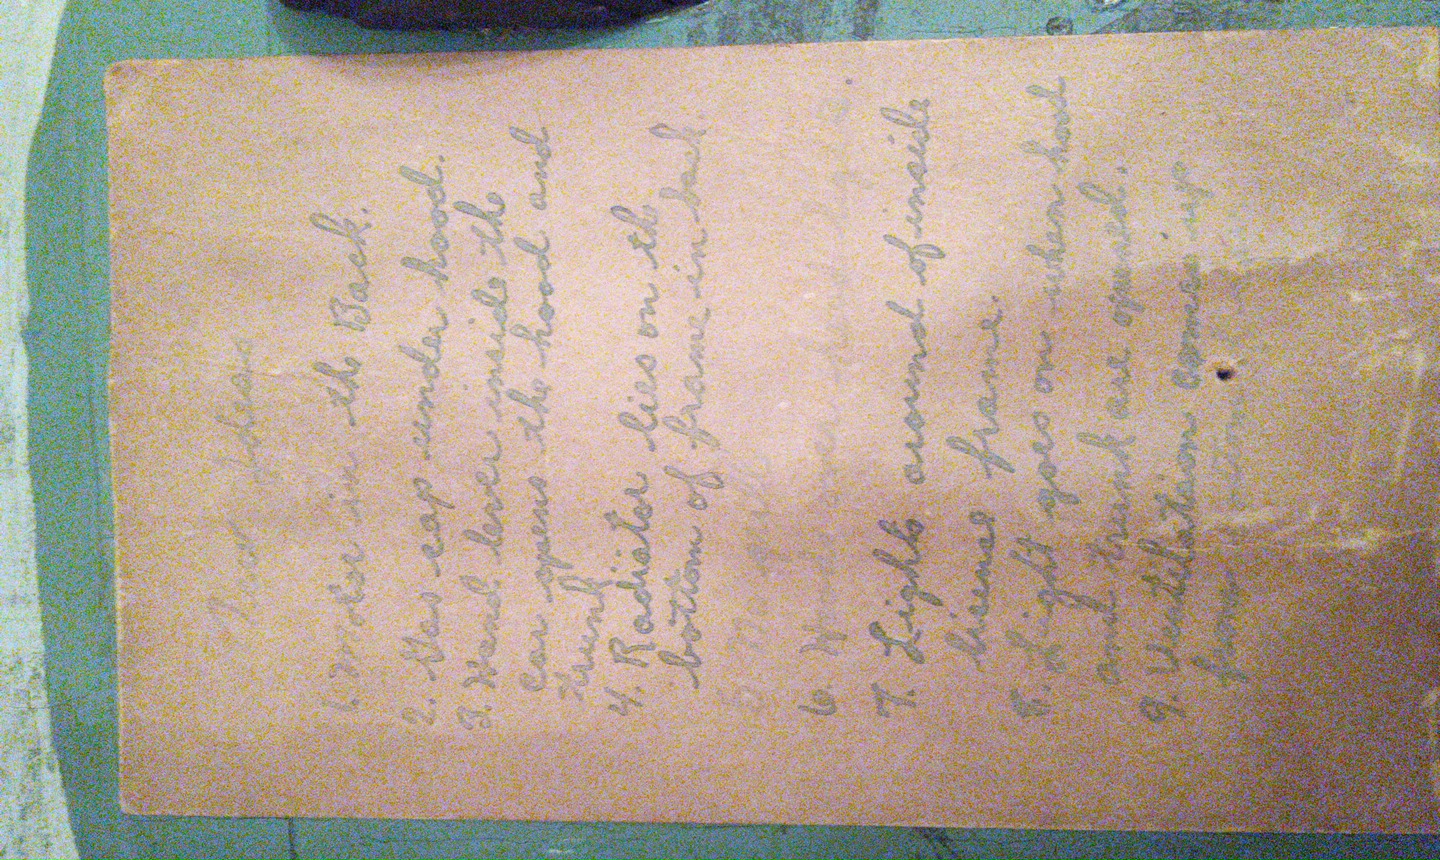 New Ideas
1. Motor in the Back.
2. Gas cap under hood.
3. Hand lever inside the
car opens the hood and
trunk
4. Radiator lies on the
bottom of frame in back.
5.
6.
7. Lights around of inside
license frame.
8. Light goes on when hood
and trunk are opened.
9. Ventillation comes up
from